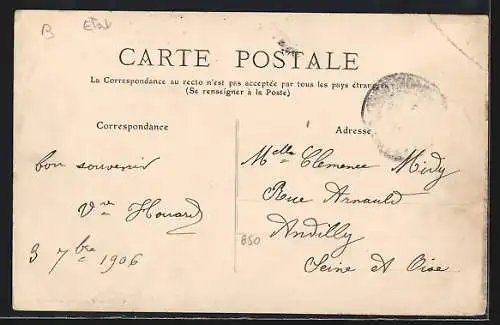 B
Etat
CARTE POSTALE
La Correspondance au recto n'est pas acceptée par tous les pays étrangers
(Se renseigner à la Poste)
Correspondance
Adresse
bon souvenir
Vve Houard
3 7bre 1906
850
Melle Clemence Midy
Rue Arnauld
Andilly
Seine et Oise